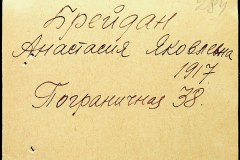 Брейдан
Анастасия Яковлевна
1917.
Пограничная 38.